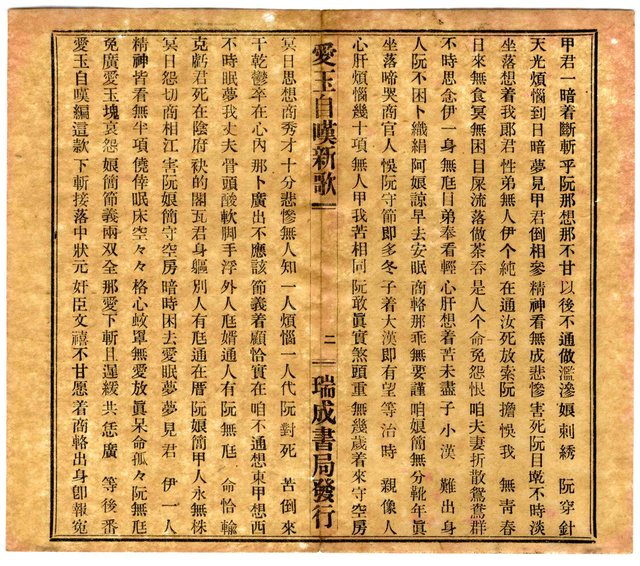 甲君一暗着斷斬乎阮那想那不甘以後不通做濫滲娘刺綉阮穿針
天光煩惱到日暗夢見甲君倒相參精神看無成悲慘害死阮目不時淡
坐落想着我郎君性弟無人伊个純在通汝死放索阮擔悞我無青春
日來無食冥無困目屎流落做茶吞是人个命免怨恨咱夫妻折散鴛鴦群
不時思念伊一身無尫目弟奉看輕心肝想着苦未盡子小漢難出身
人阮不困卜織絹阿娘諒早去安眠商輅那乖無要謹咱娘簡無分靴年眞
坐落啼哭商官人悞阮守節即多冬子着大漢即有望等治時親像人
心肝煩惱幾十項無人甲我苦相同阮敢眞實煞頭重無幾歲着來守空房
愛玉自嘆新歌 二 瑞成書局發行
冥日思想商秀才十分悲慘無人知一人煩惱一人代阮對死苦倒來
干乾鬱卒在心內那卜廣出不應該節義着顧恰實在咱不通想東甲想西
不時眠夢我丈夫骨頭酸軟脚手浮外人尫婿通人有阮無尫命恰輸
克虧君死在陰府袂的閣瓦君身軀別人有尫通在厝阮娘簡甲人永無株
冥日怨切商相江害阮娘簡守空房暗時困去愛眠夢夢見君伊一人
精神皆看無半項僥倖眠床空々々格心蚊罩無愛放眞呆命孤々阮無尫
免廣愛玉塊哀怨娘簡節義兩双全那愛下斬且遲緩共恁廣等後番
愛玉自嘆編這款下斬接落中狀元奸臣文禧不甘愿着商輅出身卽報寃